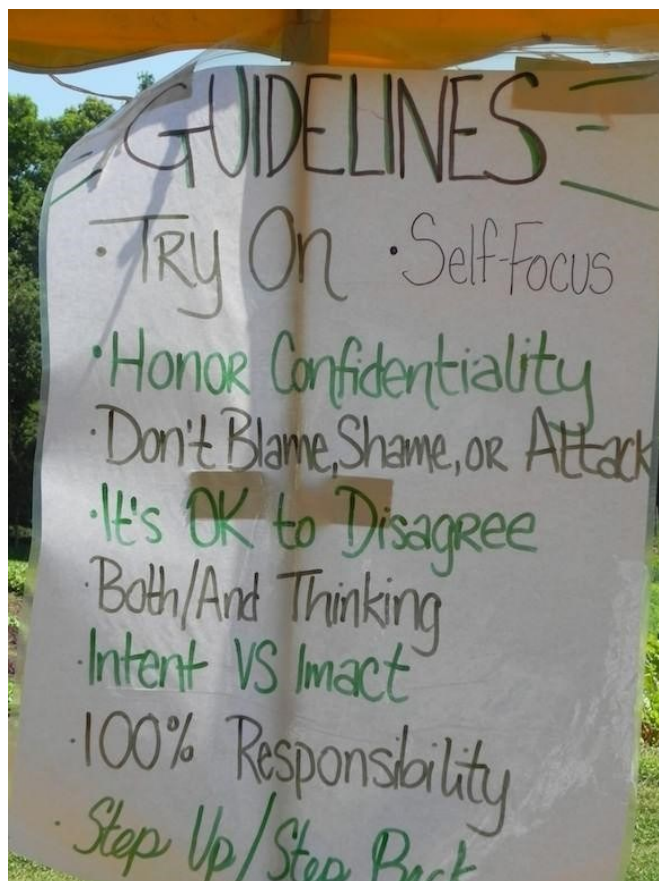 GUIDELINES
· Try On · Self-Focus
· Honor Confidentiality
· Don't Blame, Shame, or Attack
· It's OK to Disagree
· Both/And Thinking
· Intent VS Imact
· 100% Responsibility
· Step Up/Step Back